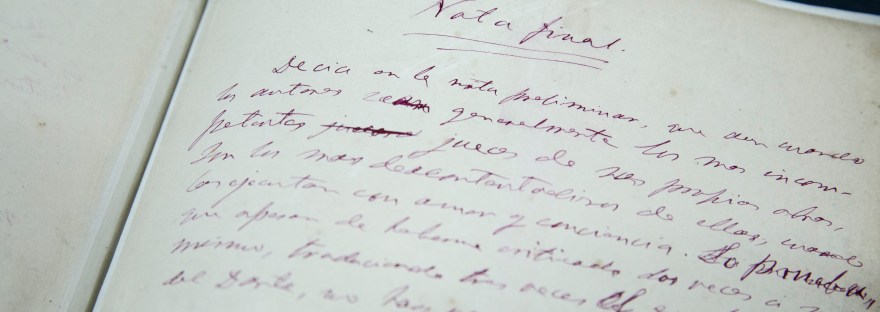 Nota final.
Decia en la nota preliminar, que aun cuando
los autores sean generalmente los mas incom-
petentes jueces de sus propias obras,
son los mas descontentadizos de ellas, cuando
las ejecutan con amor y conciencia. Lo prueba
que apesar de haberme criticado dos veces a
mismo, traduciendo tres veces el
del Dante, no